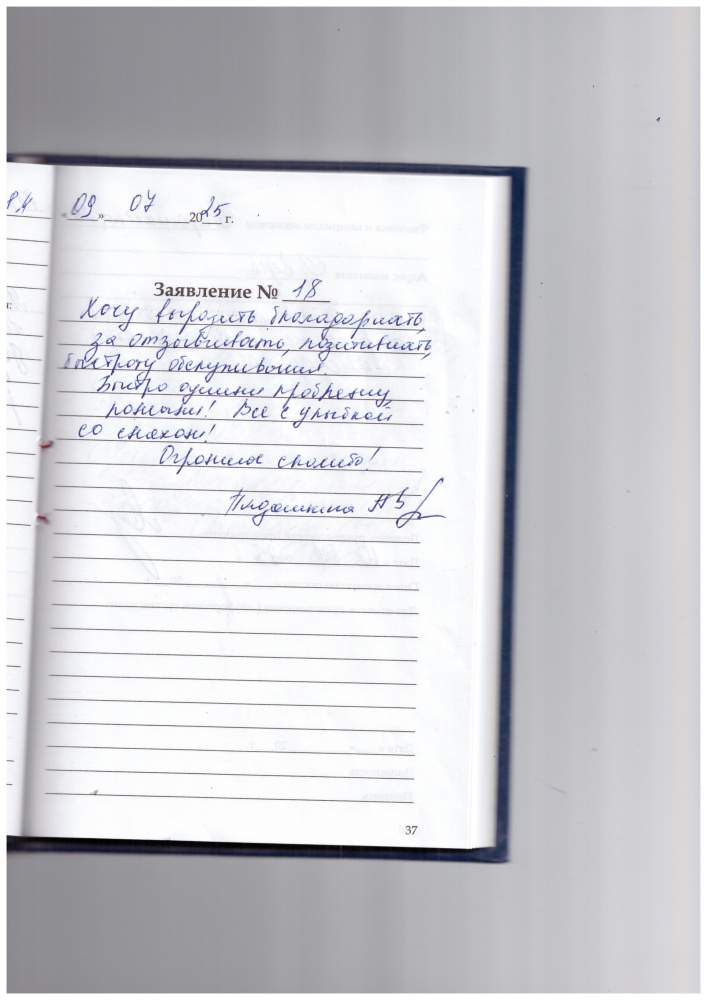 «09» 07 2025 г.
Заявление № 18
Хочу выразить благодарность,
за отзывчивость, позитивность,
быстроту обслуживания.
Быстро
решили! Все с улыбкой
со смехом!
Огромное спасибо!
37